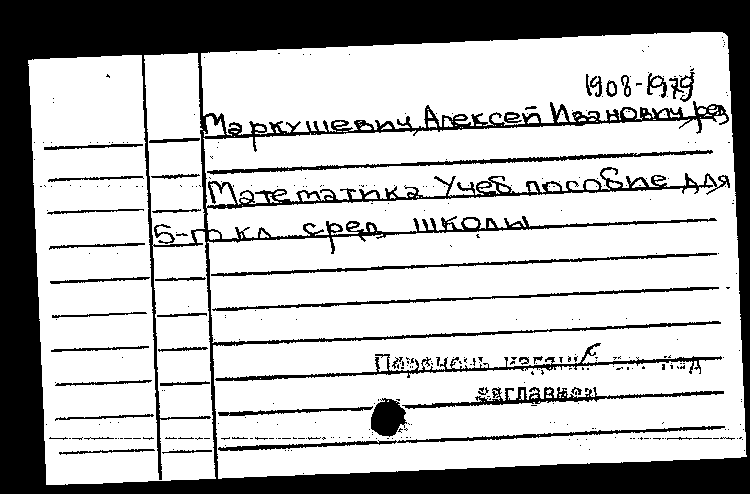 1908-1979
Маркушевич, Алексей Иванович, ред
Математика Учеб пособие для
5-го кл сред школы
Перечень изданий см. под
заглавием